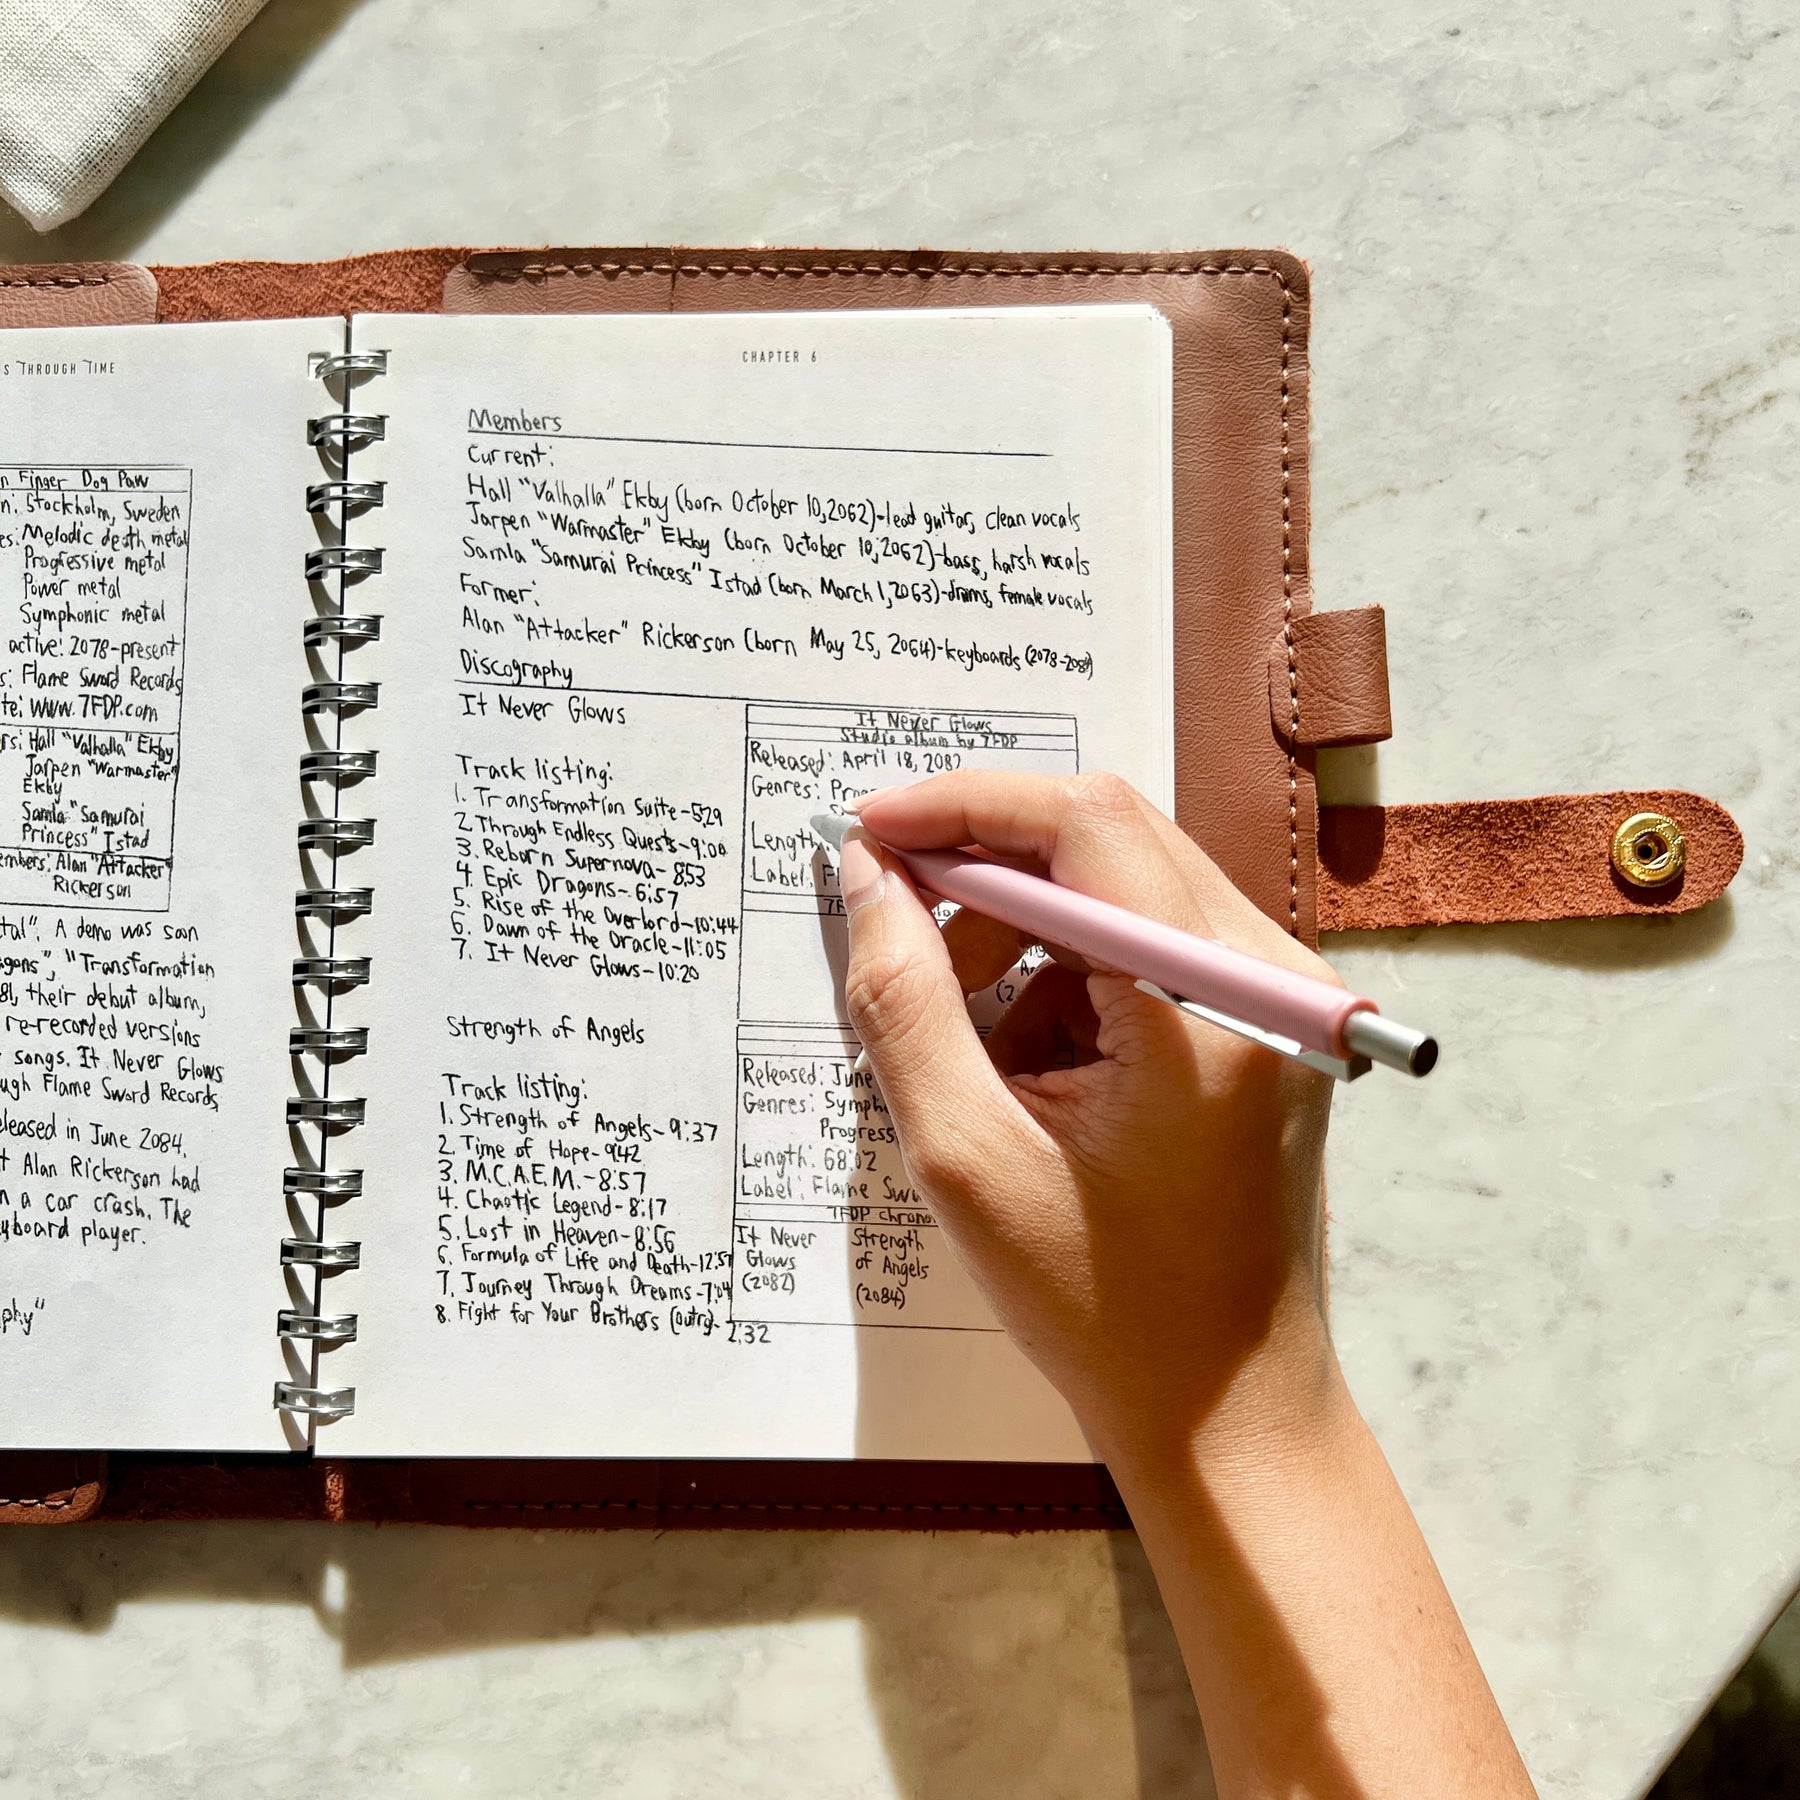 THROUGH TIME
Finger Dog Paw
Stockholm, Sweden
Melodic death metal
Progressive metal
Power metal
Symphonic metal
active: 2078-present
Flame Sword Records
www.7FDP.com
Hall "Valhalla" Ekby
Jarpen "Warmaster"
Ekby
Samla "Samurai
Princess" Istad
Alan "Attacker"
Rickerson
A demo was soon
"Transformation
their debut album,
re-recorded versions
songs. It Never Glows
Flame Sword Records,
in June 2084.
Alan Rickerson had
a car crash. The
player.
CHAPTER 6
Members
Current:
Hall "Valhalla" Ekby (born October 10, 2062)-lead guitar, clean vocals
Jarpen "Warmaster" Ekby (born October 10, 2062)-bass, harsh vocals
Samla "Samurai Princess" Istad (born March 1, 2063)-drums, female vocals
Former:
Alan "Attacker" Rickerson (born May 25, 2064)-keyboards (2078-2084)
Discography
It Never Glows
Track listing:
1. Transformation Suite-5:29
2. Through Endless Quests-9:00
3. Reborn Supernova-8:53
4. Epic Dragons-6:57
5. Rise of the Overlord-10:44
6. Dawn of the Oracle-11:05
7. It Never Glows-10:20
It Never Glows
Studio album by 7FDP
Released: April 18, 2082
Genres:
Length:
Label:
Strength of Angels
Track listing:
1. Strength of Angels-9:37
2. Time of Hope-9:42
3. M.C.A.E.M.-8:57
4. Chaotic Legend-8:17
5. Lost in Heaven-8:56
6. Formula of Life and Death-12:57
7. Journey Through Dreams-7:04
8. Fight for Your Brothers (outro)-
2:32
Released: June
Genres:
Length: 68:02
Label: Flame
7FDP
It Never Strength
Glows of Angels
(2082) (2084)